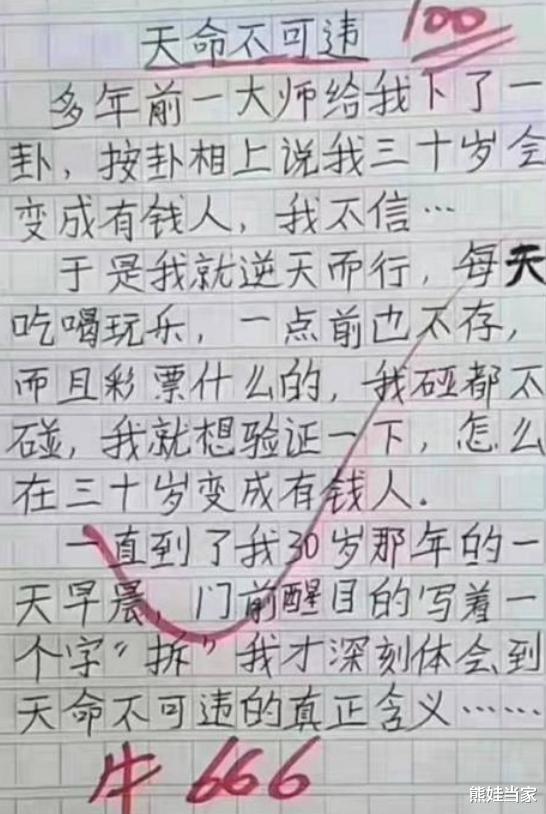 天命不可违
100
多年前一大师给我下了一
卦，按卦相上说我三十岁会
变成有钱人，我不信…
于是我就逆天而行，每天
吃喝玩乐，一点前也不存，
而且彩票什么的，我碰都不
碰，我就想验证一下，怎么
在三十岁变成有钱人.
一直到了我30岁那年的一
天早晨，门前醒目的写着一
个字“拆”我才深刻体会到
天命不可违的真正含义……
牛 666
熊娃当家